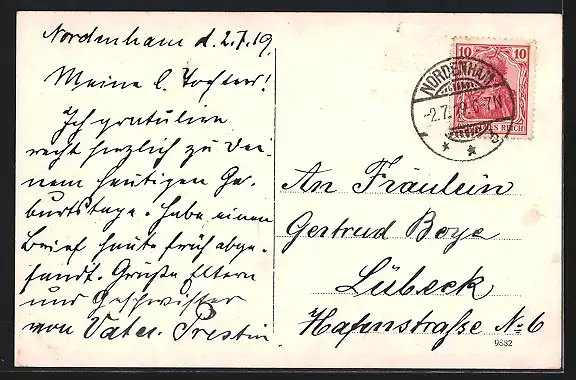 Nordenham d. 2.7.19.
Meine l. Tochter!
Ich gratuliere
recht herzlich zu Dei-
nem heutigen Ge-
burtstage. Habe einen
Brief heute früh abge-
sandt. Grüße Eltern
und Geschwister
von Vater. Prestin
10 10
NORDENHAM
-2.7. 5-7N
REICH
An Fräulein
Gertrud Boye
Lübeck
Hafenstraße No 6
9882